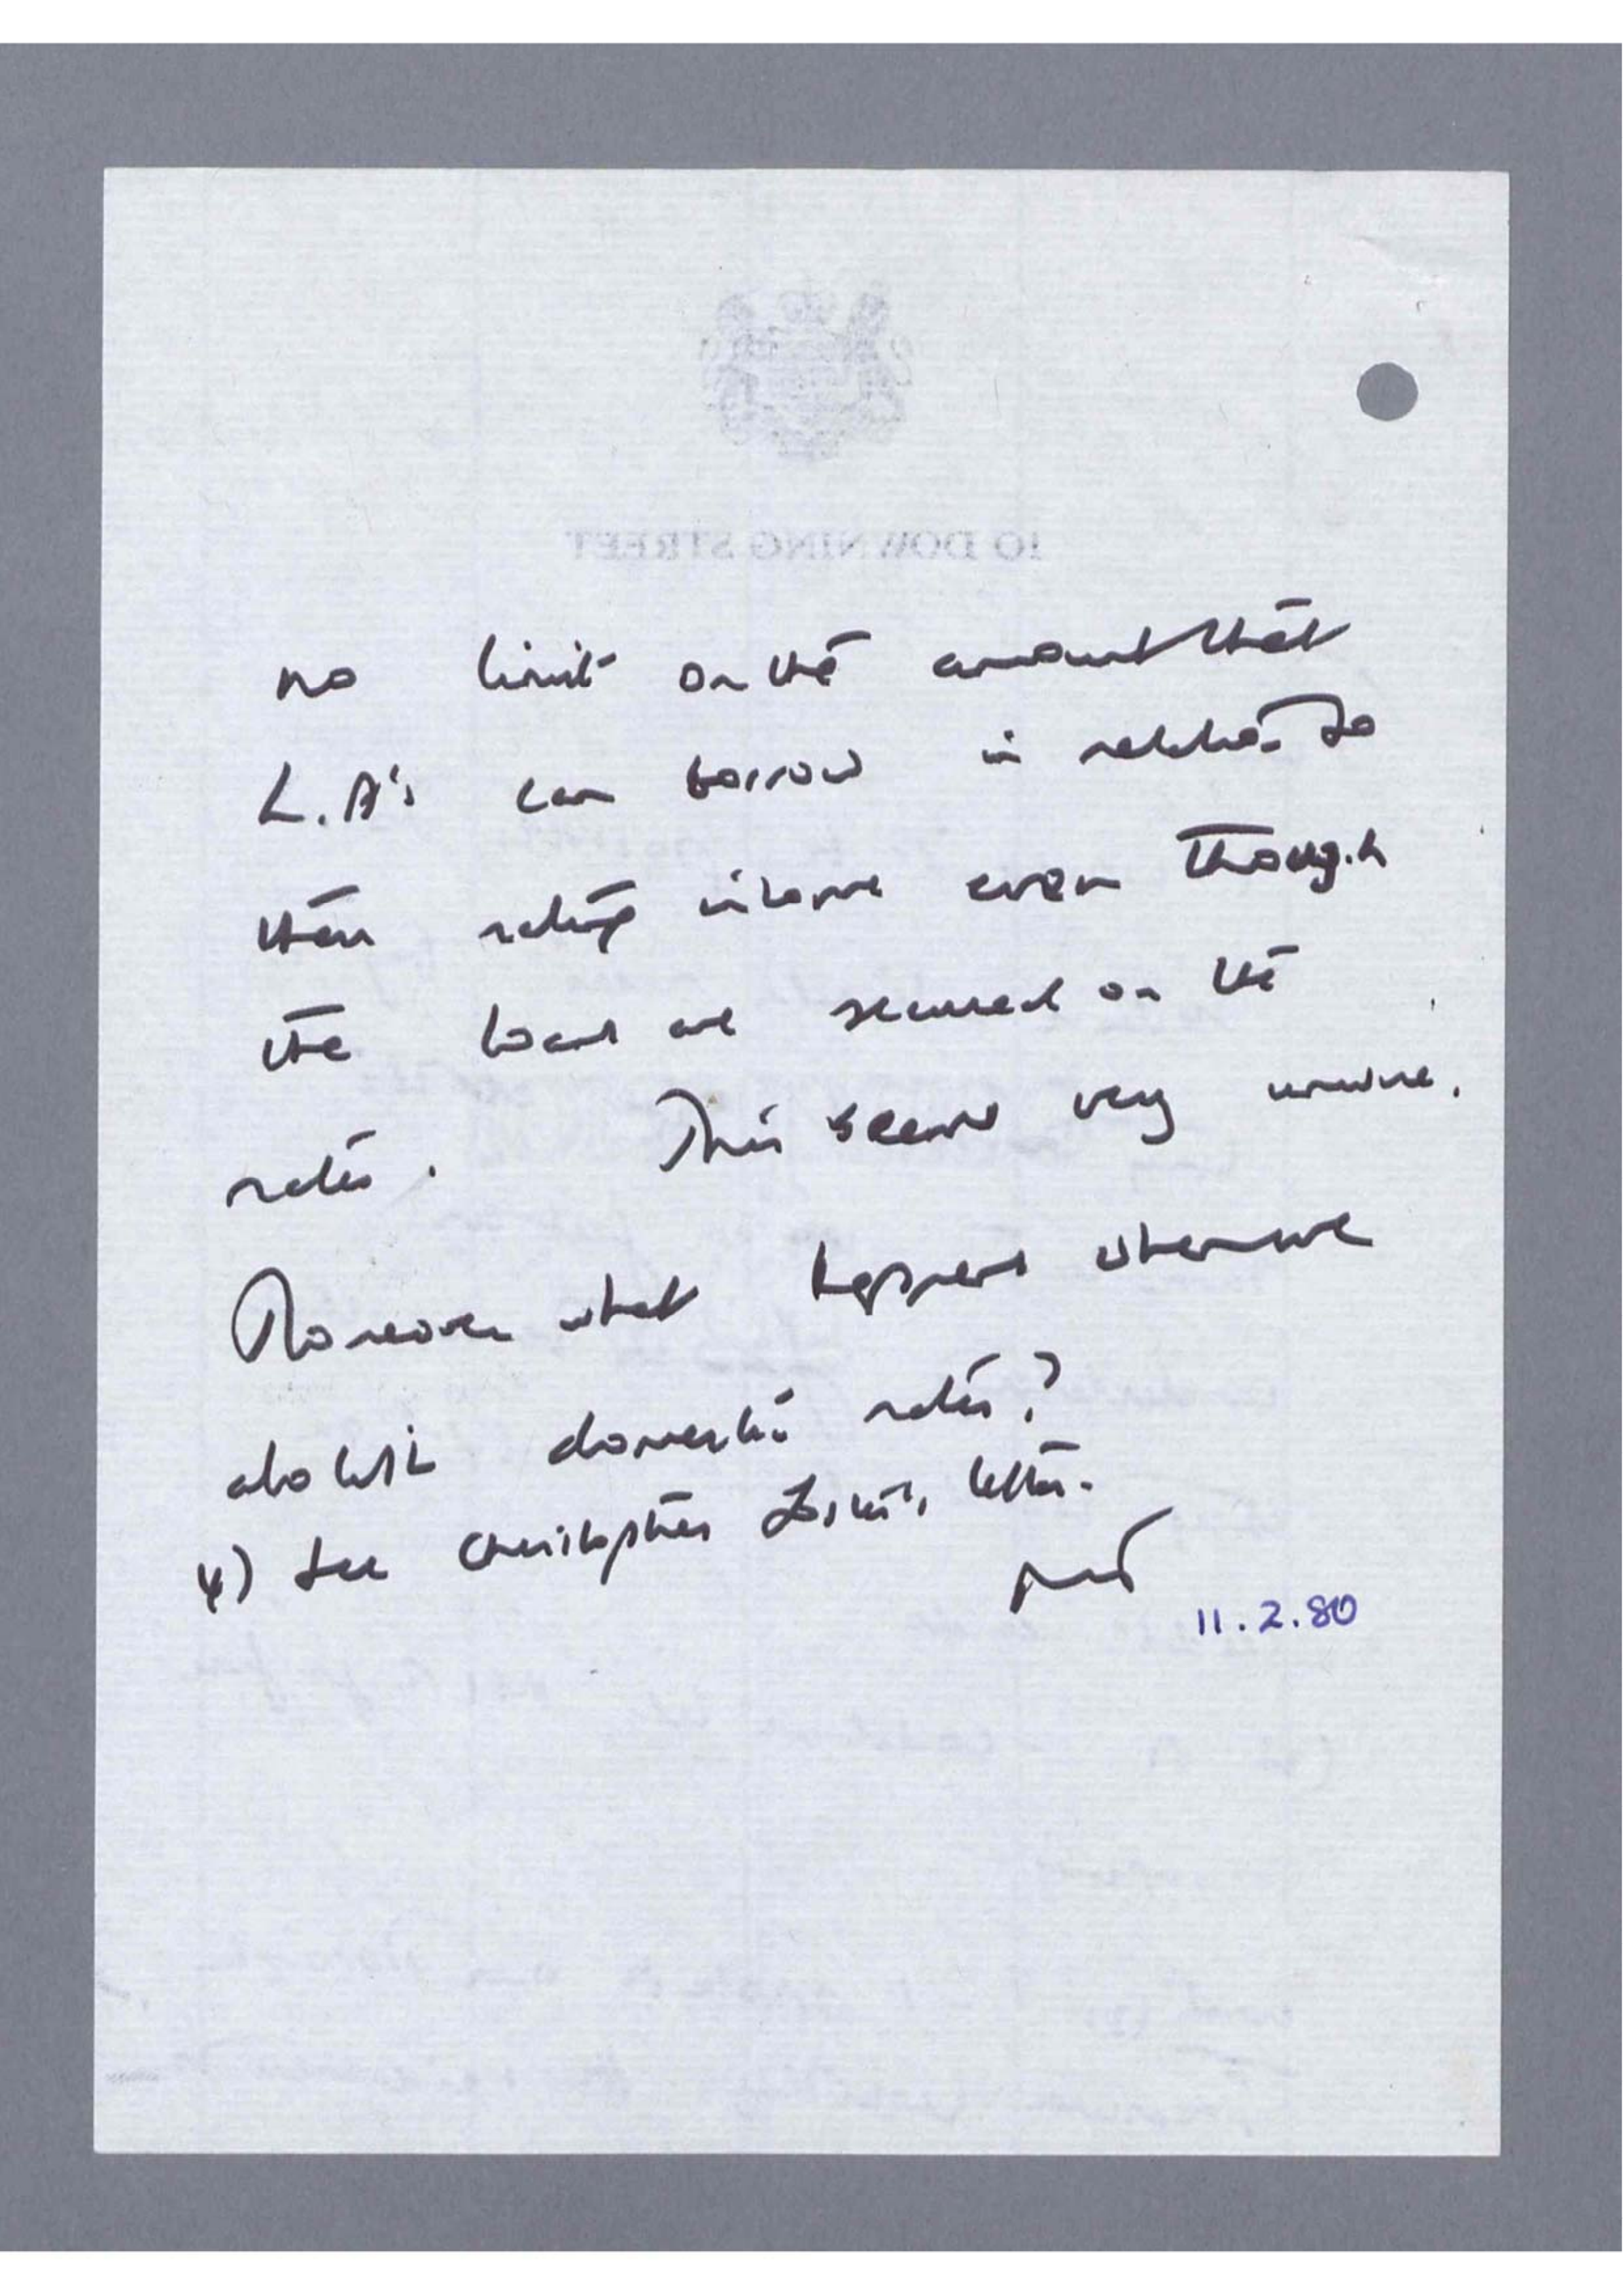 10 DOWNING STREET
no limit on the amount that
L.A's can borrow in relation to
their rating income even though
the loans are secured on the
rates. This seems very unwise.
Moreover what happens when we
abolish domestic rates?
4) See Christopher letter.
MT
11.2.80